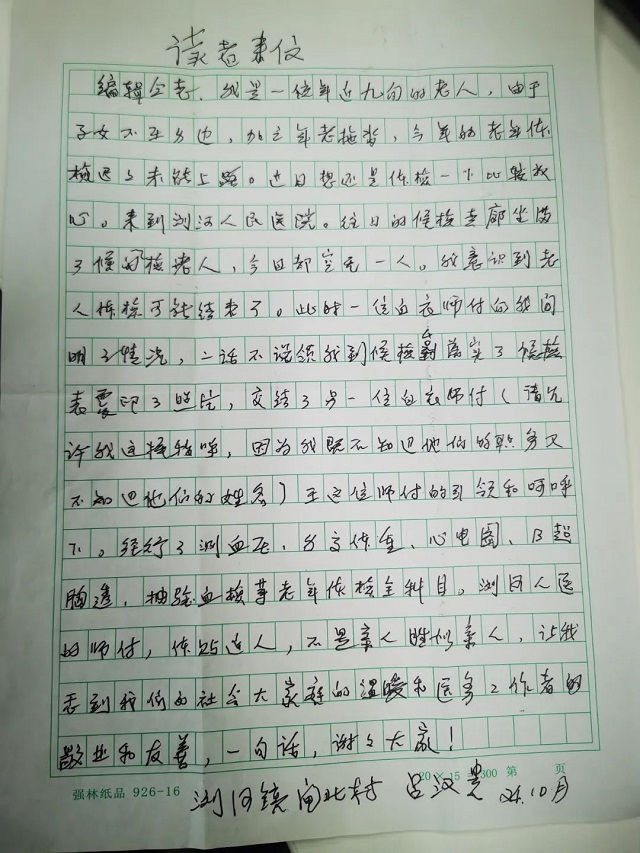 读者来信
编辑全志、我是一位年近九旬的老人，由于
子女不在身边，加之年老拖沓，今年的老年体
检迟々未能上路。近日想还是体检一下比较放
心。来到浏河人民医院。往日的候检走廊坐满
了候检老人，今日却空无一人。我意识到老
人体检可能结束了。此时一位白衣师付向我问
明了情况，二话不说领我到候检 填写了候检
表 印了照片，交结了另一位白衣师付（请允
许我这样称呼，因为我既不知道他们的职务又
不知道他们的姓名）在这位师付的引领和呵呼
下。经行了测血压、身高体重、心电图、B超
胸透、抽验血检等老年体检全科目。浏河人医
的师付，体贴近人，不是亲人胜似亲人，让我
看到我们的社会大家庭的温暖和医务工作者的
敬业和友善，一句话，谢々大家！
强林纸品 926-16
20×15 300 第 页
浏河镇闸北村 吕汉 24.10月